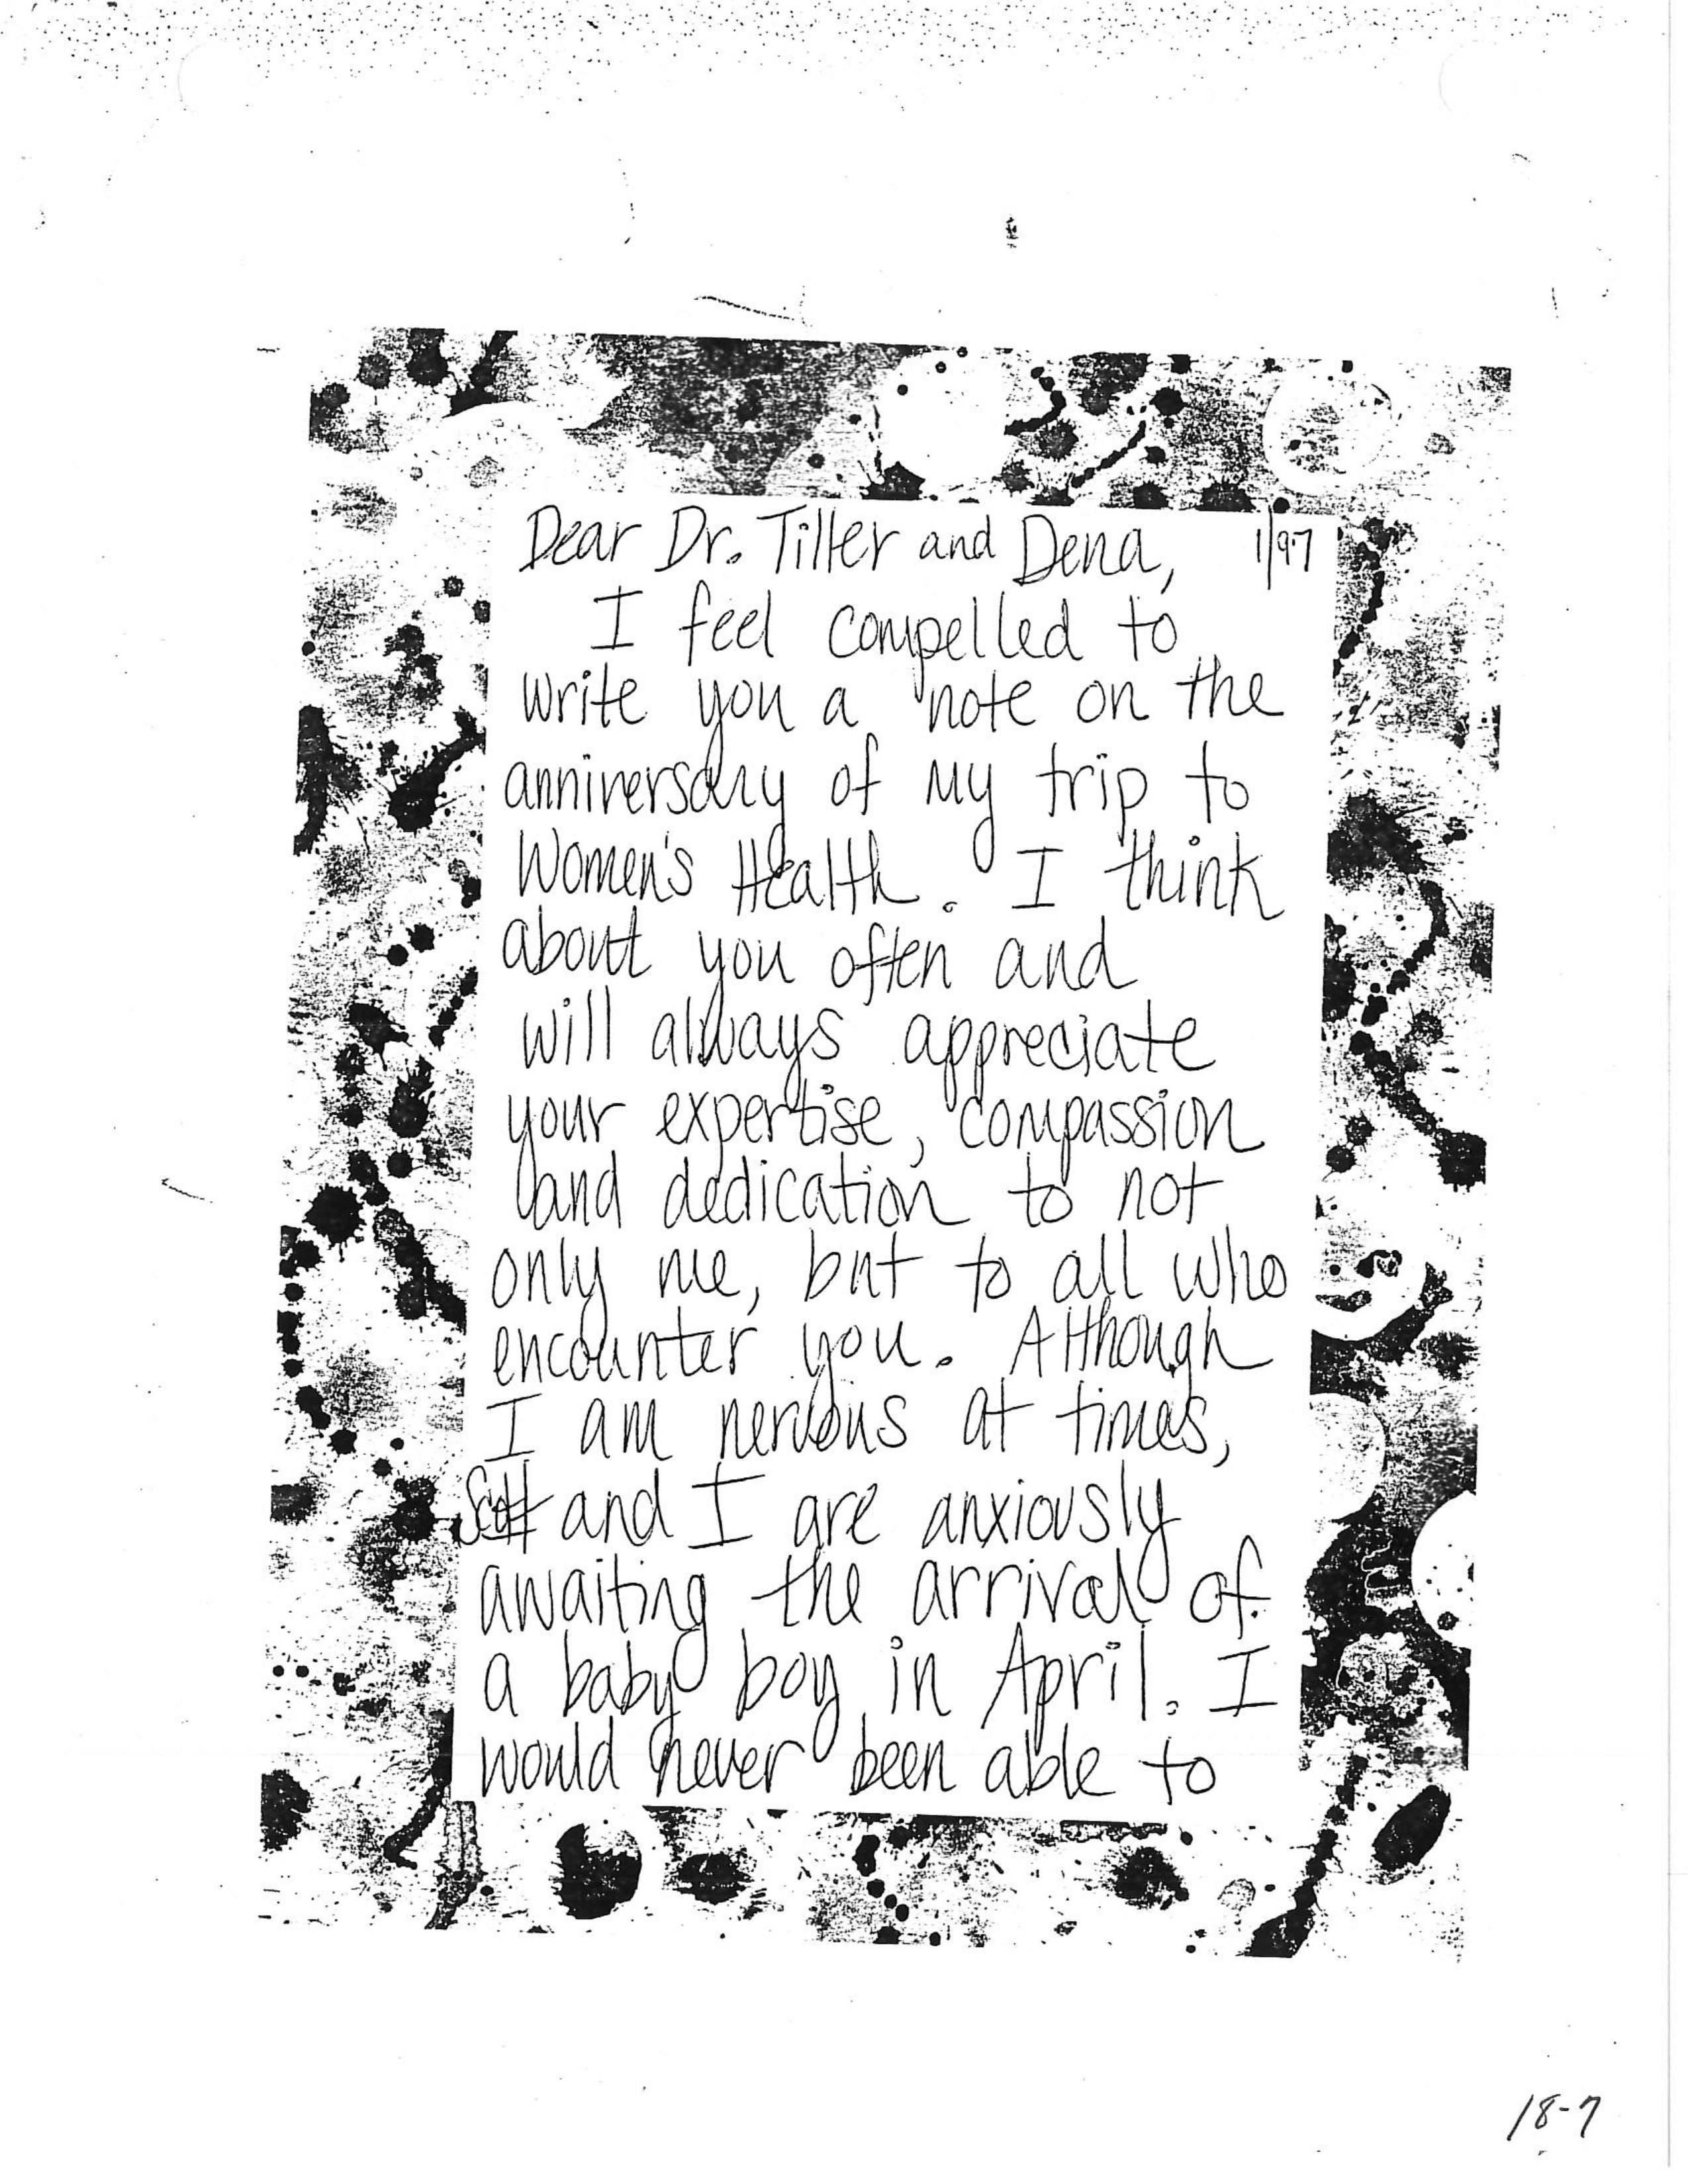 Dear Dr. Tiller and Dena, 1/97
I feel compelled to
write you a note on the
anniversary of my trip to
Women's Health. I think
about you often and
will always appreciate
your expertise, compassion
and dedication to not
only me, but to all who
encounter you. Although
I am nervous at times,
Scott and I are anxiously
awaiting the arrival of
a baby boy in April. I
would never been able to
18-7